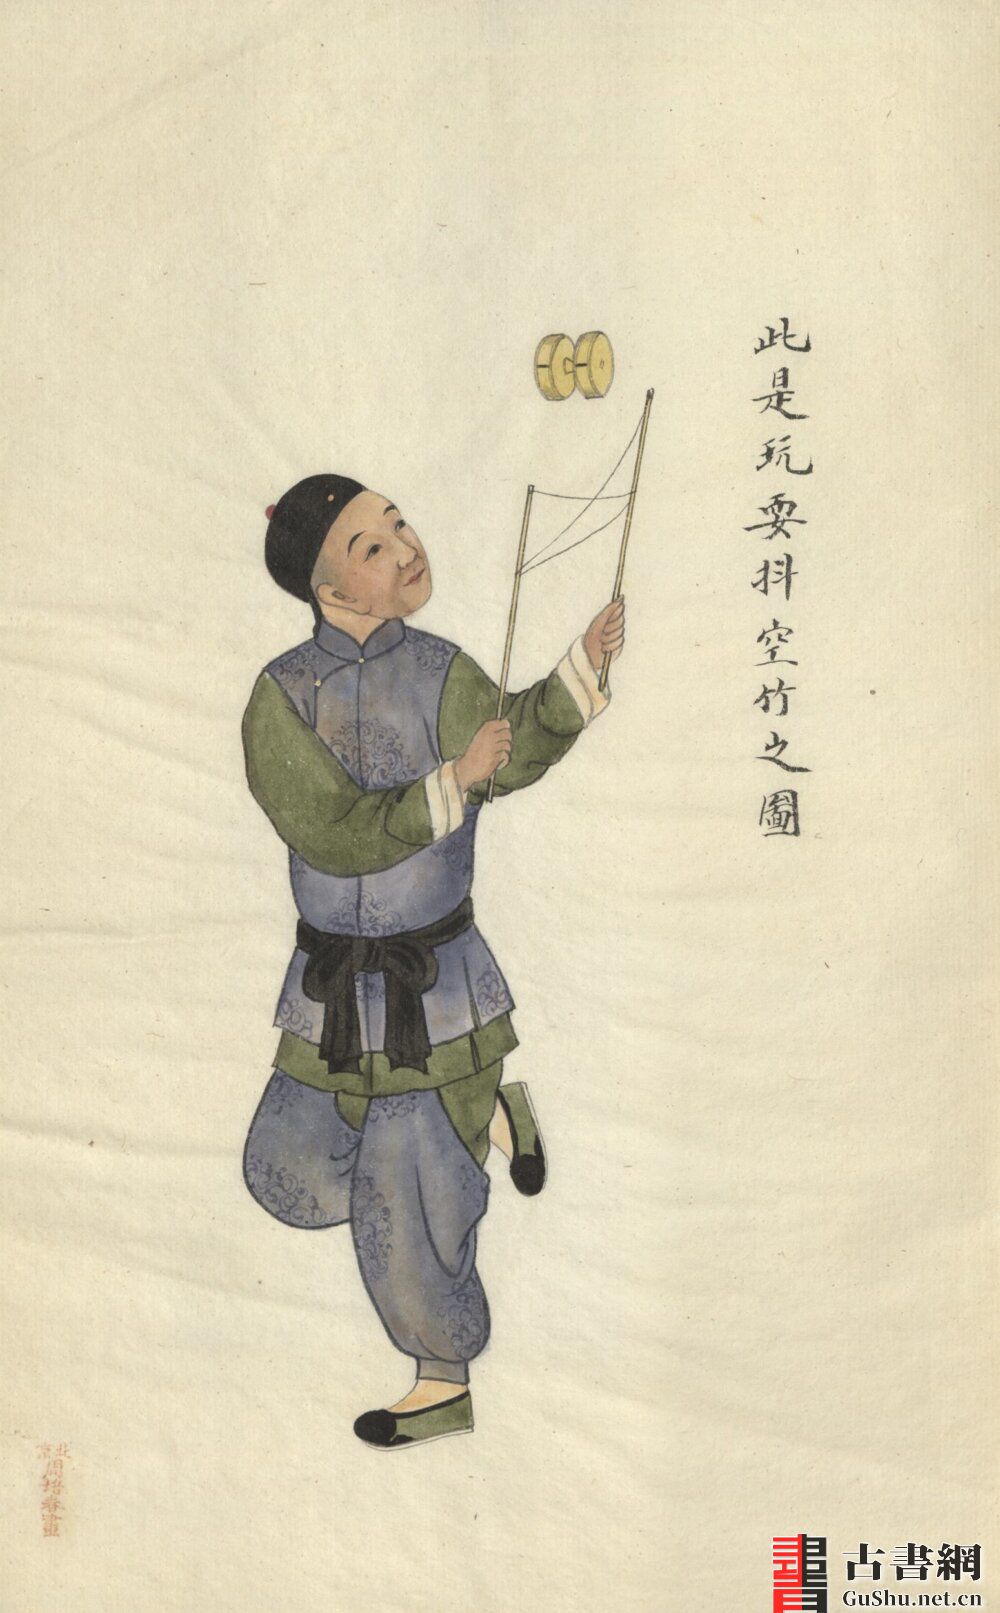 此是玩耍抖空竹之圖
北京
周培春畫
古書網
GuShu.net.cn